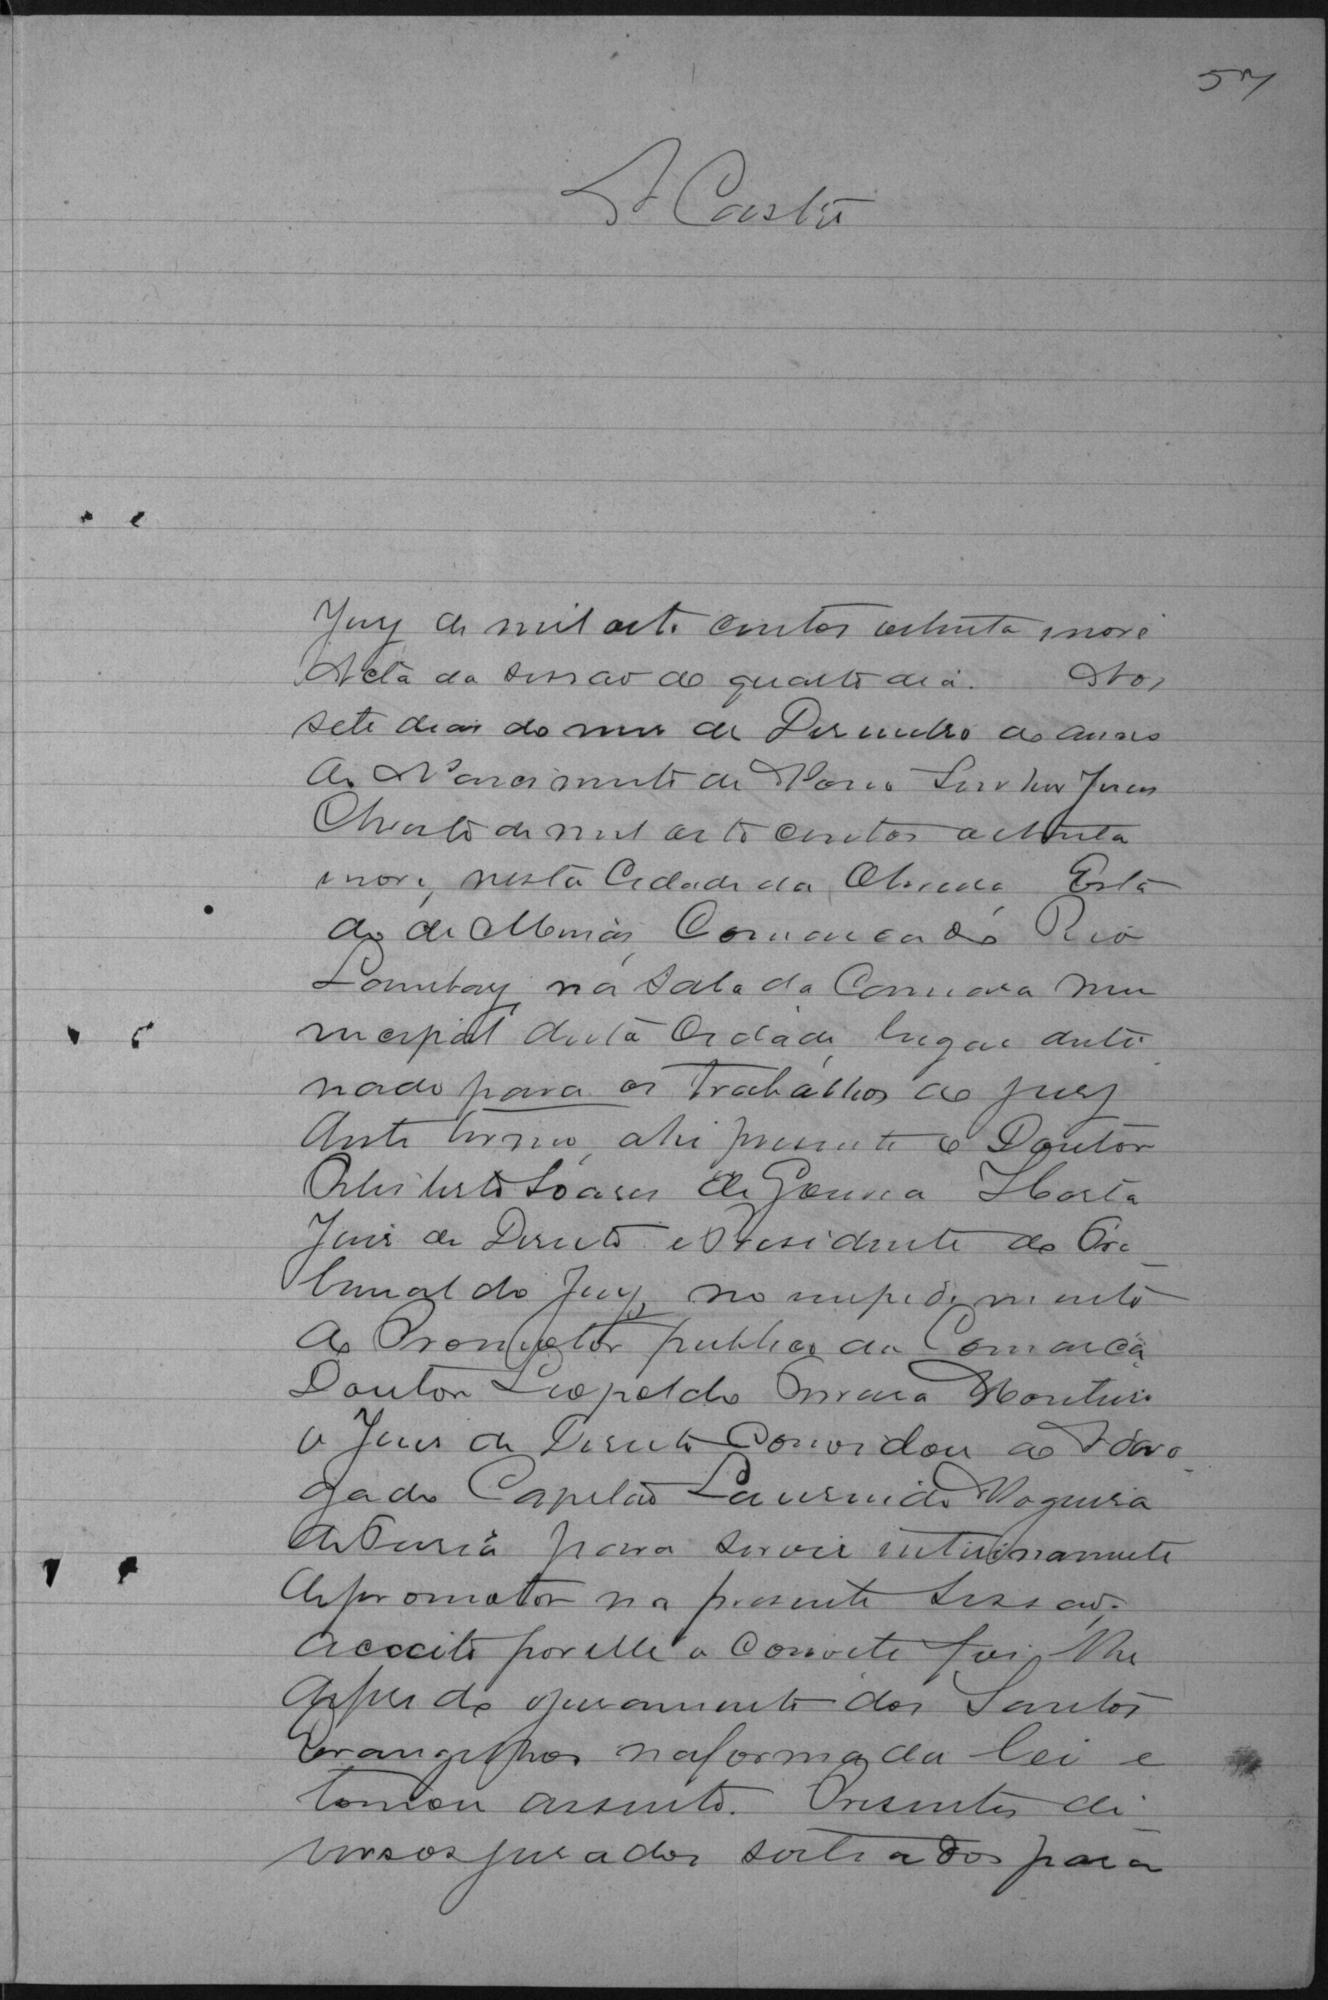 57
A Castro
Jury de mil oito centos oitenta e nove
Acta da sessão do quarto dia. Aos
sete dias do mez de Dezembro do anno
do Nascimento de Nosso Senhor Jesus
Christo de mil oito centos oitenta
e nove, nesta Cidade da Oliveira Esta
do de Minas, Comarca do Rio
Lambary, na sala da Camara mu
nicipal desta Cidade, lugar desti
nado para os trabalhos do jury
deste termo, ahi presente o Doutor
Soares de Gouvea Horta
Juiz de Direito e Presidente do Tri
bunal do Jury, no impedimento
do Promotor publico da Comarca
Doutor Leopoldo Monteiro
o Juiz de Direito Convidou ao Advo
gado Capitão Nogueira
de Faria para servir interinamente
de promotor na presente sessão,
acceito por elle o convite foi lhe
deferido o juramento dos Santos
Evangelhos na forma da lei e
tomou assento. Presentes di
versos jurados sorteados para